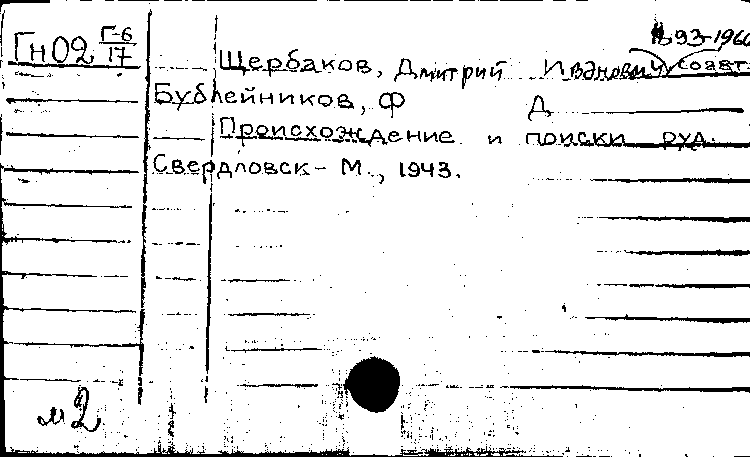 ГнО2 Г-6/17
1893-1960
Щербаков, Дмитрий Иванович, соавт.
Бублейников, Ф Д
Происхождение и поиски руд.
Свердловск - М., 1943.
м2